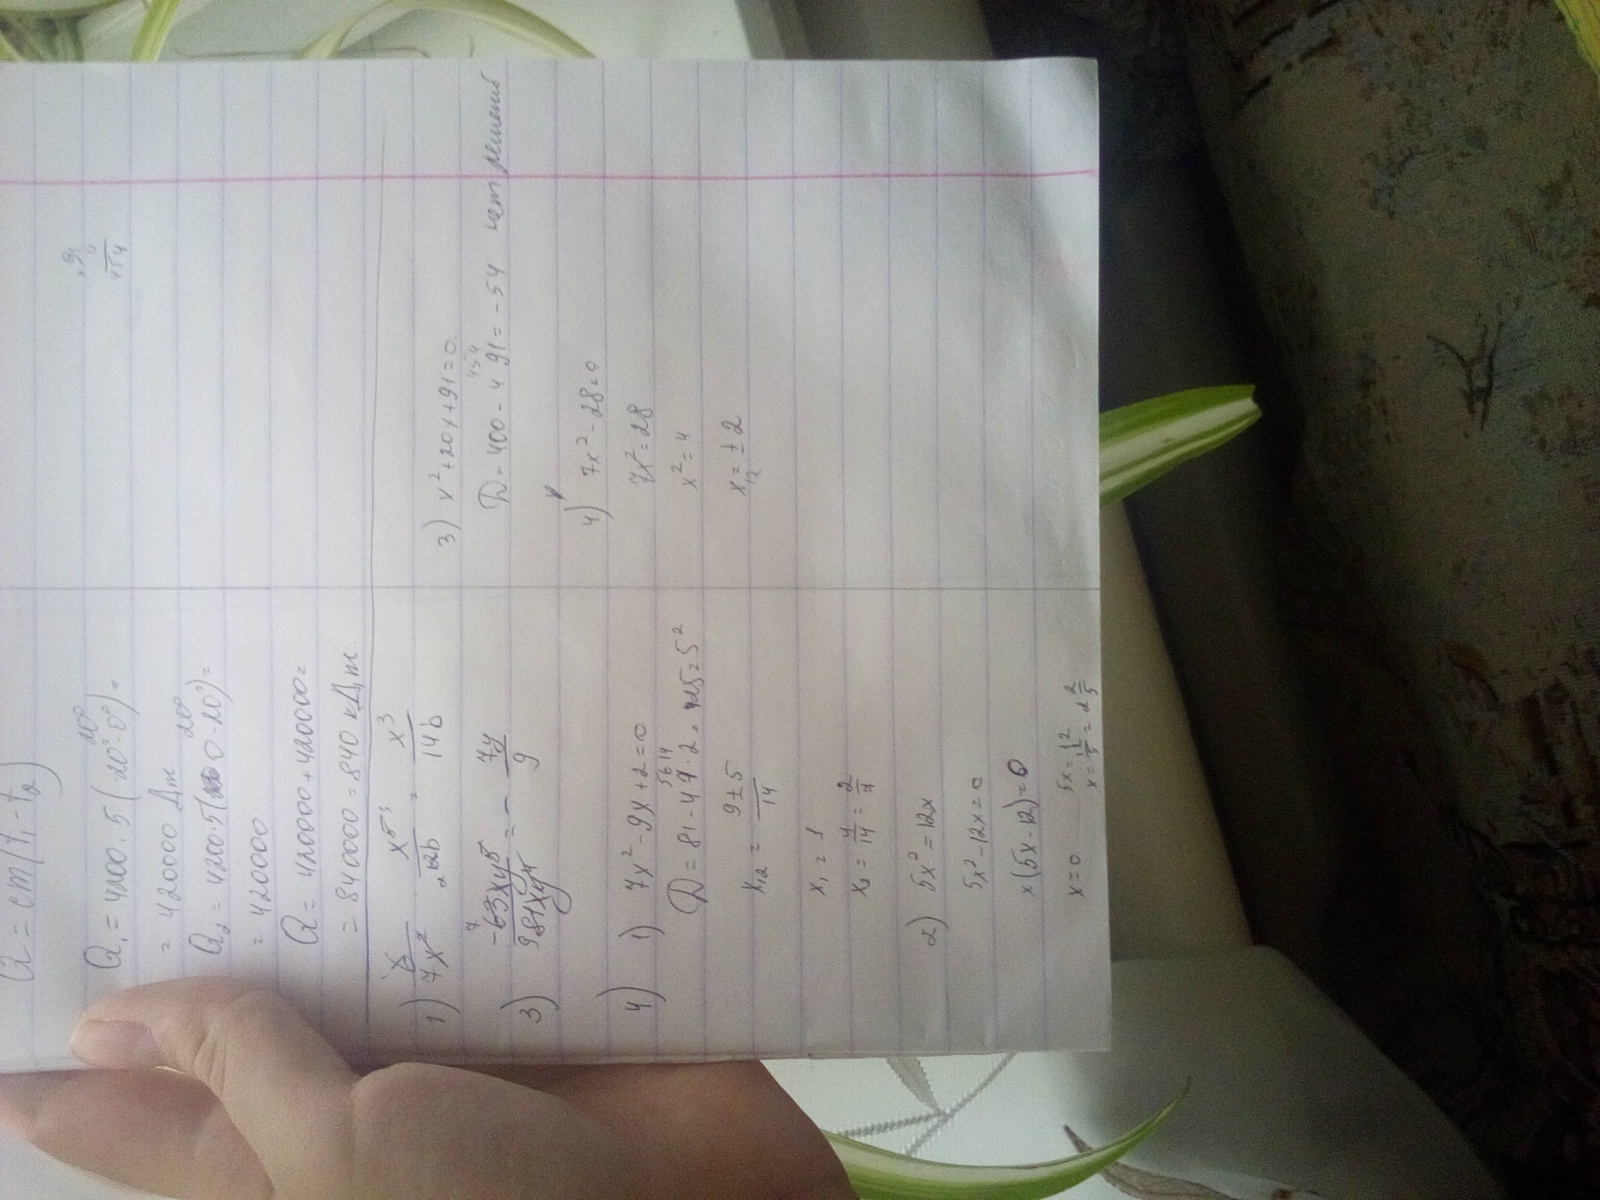 Q = cm(t₁ - t₂)
Q₁ = 4200 · 5 (20° - 0°) =
20°
= 420000 Дж
Q₂ = 4200 · 5 (0 - 20°) =
20°
= 42000
Q = 420000 + 420000 =
= 840000 = 840 кДж
1) 6/7x² · x⁵³/2b = x³/14b
3) -63xy⁵/81xy⁴ = - 7y/9
7
9
4) 1) 7x² - 9x + 2 = 0
D = 81 - 4 · 7 · 2 = 25 = 5²
56
x₁₂ = 9 ± 5/14
x₁ = 1
x₂ = 4/14 = 2/7
2) 5x² = 12x
5x² - 12x = 0
x(5x - 12) = 0
x = 0 5x = 12
x = 12/5 = 2 2/5
91
454
3) x² + 20x + 91 = 0
D = 400 - 4 · 91 = -54 нет решений
454
4) 7x² - 28 = 0
7x² = 28
x² = 4
x₁₂ = ± 2